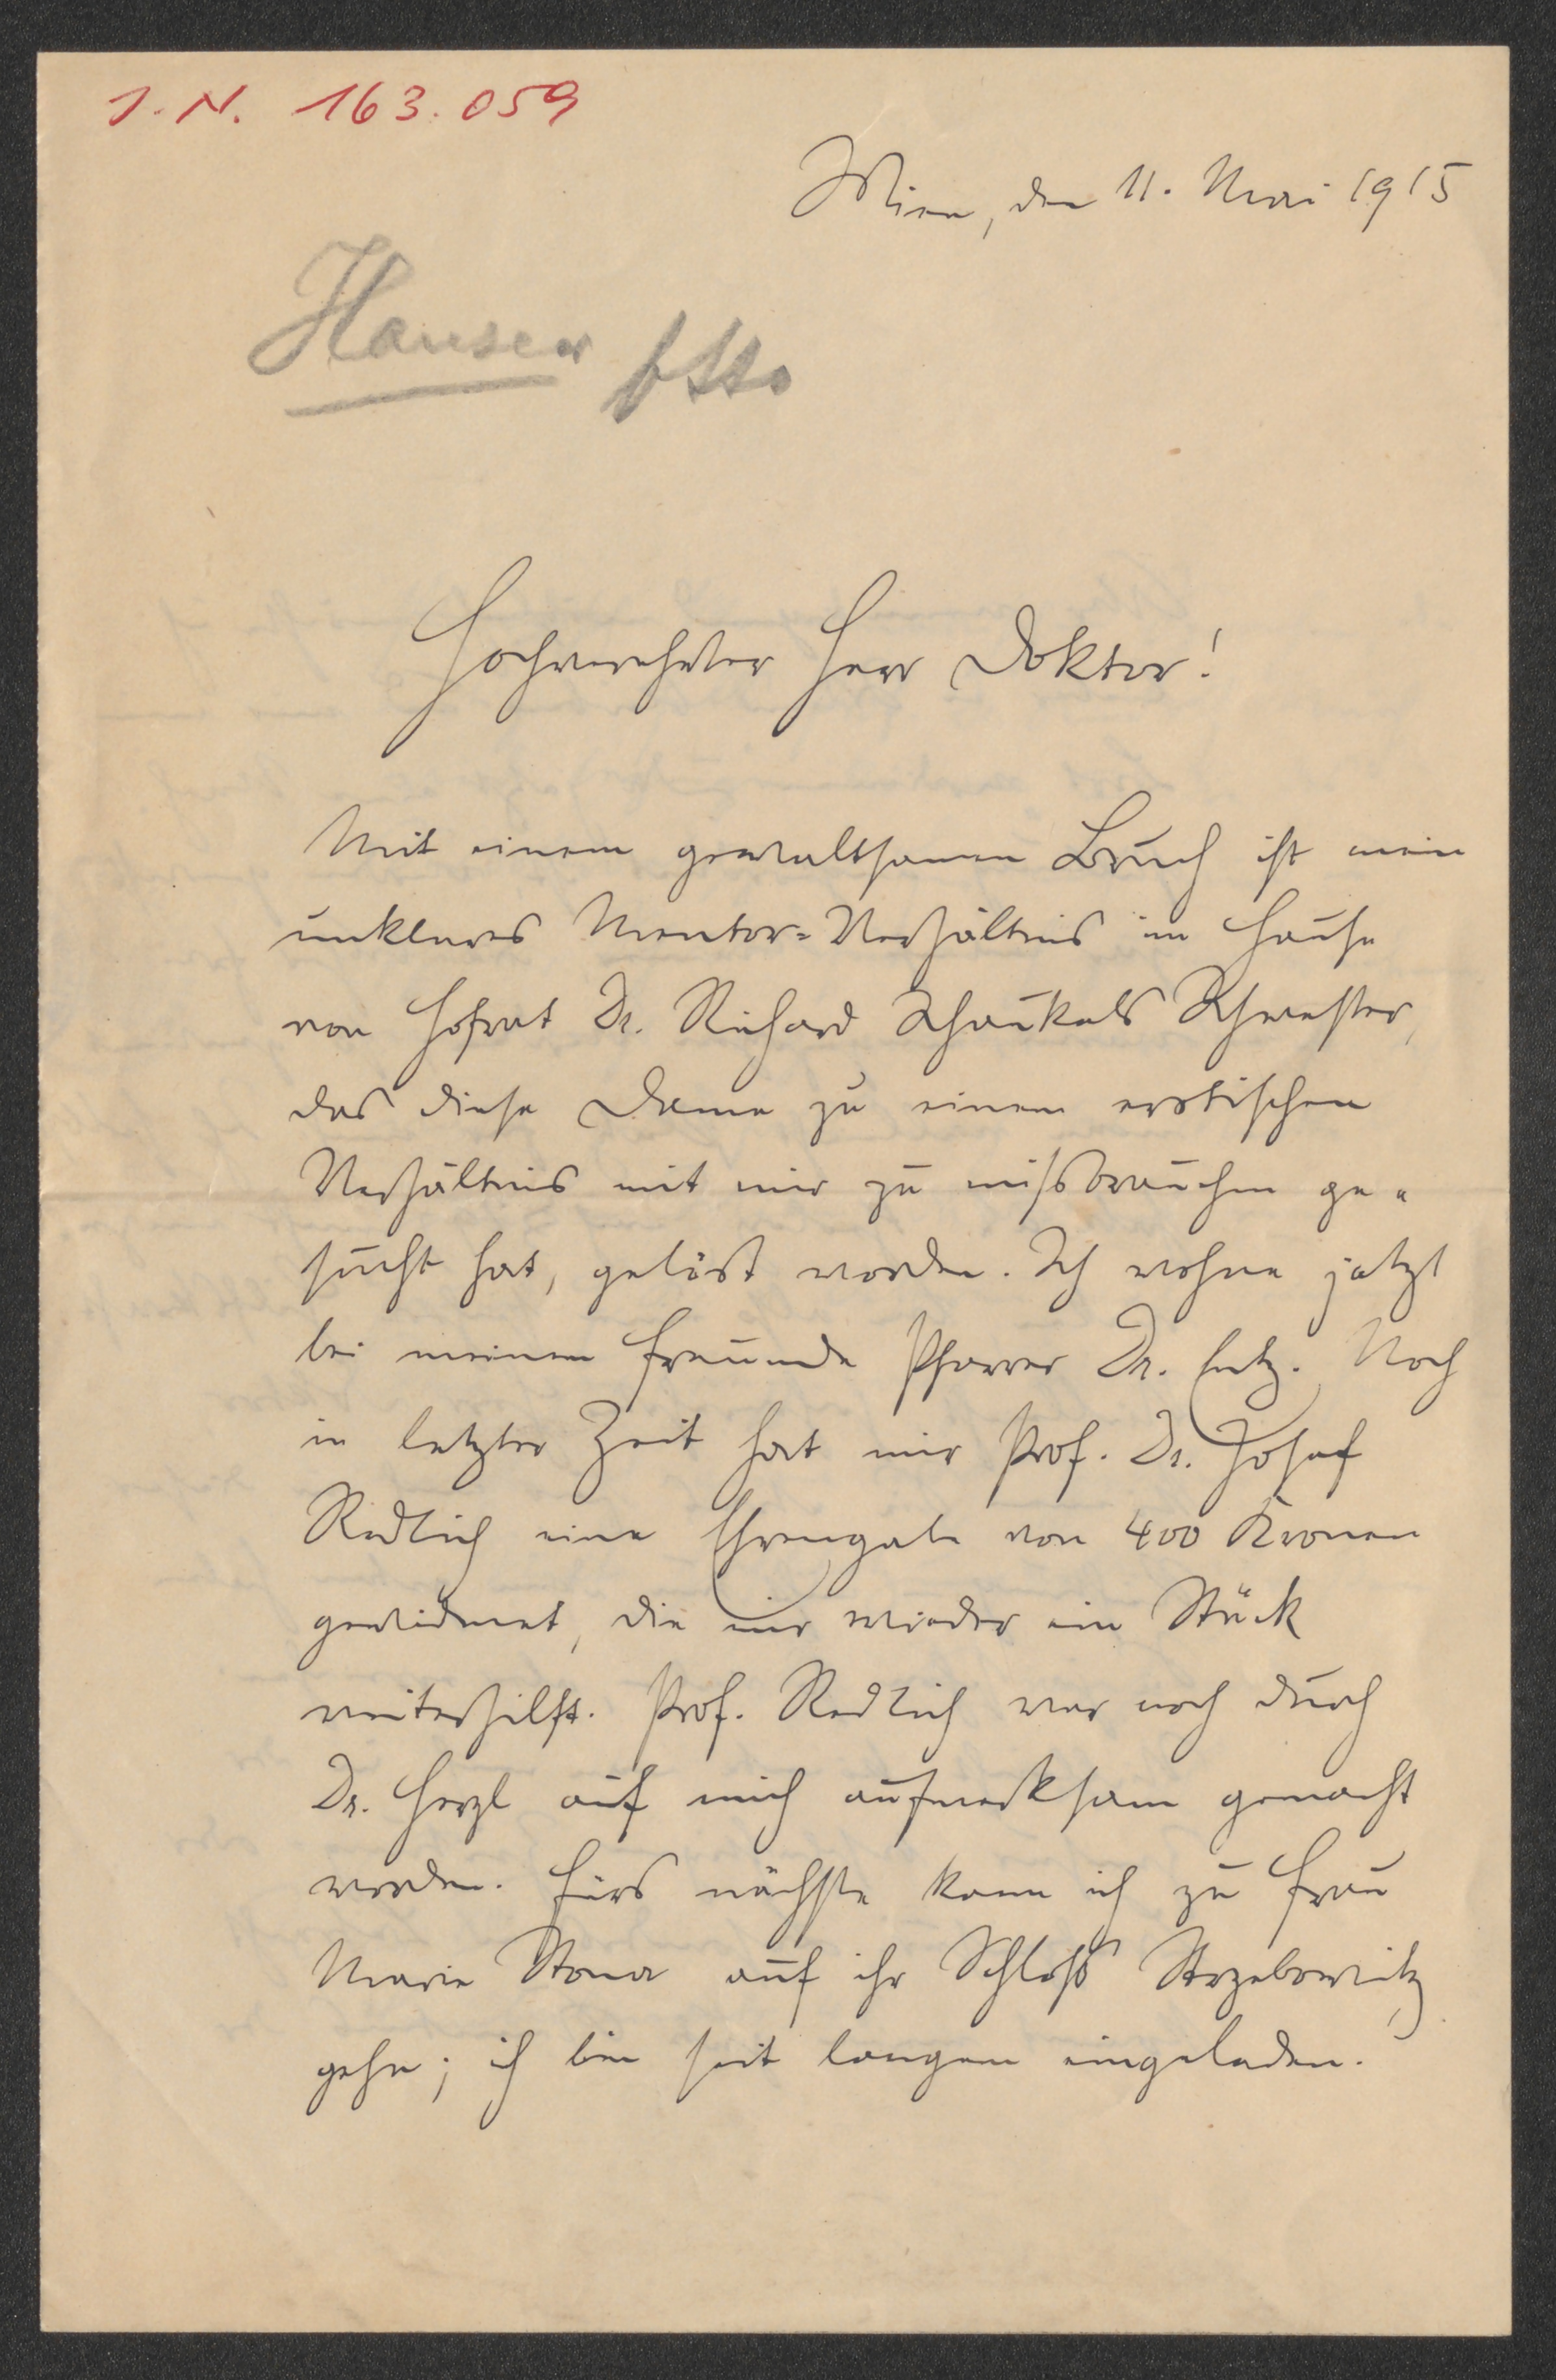 J. N. 163.059
Wien, den 11. Mai 1915
Hauser Otto
Hochverehrter Herr Doktor!
Mit einem gewaltsamen Bruch ist mein
unklares Mentor-Verhältnis im Hause
von Hofrat Dr. Richard Schaukals Schwester,
das diese Dame zu einem erotischen
Verhältnis mit mir zu missbrauchen ge-
sucht hat, gelöst worden. Ich wohne jetzt
bei meinem Freunde Pfarrer Dr. Entz. Noch
in letzter Zeit hat mir Prof. Dr. Josef
Redlich eine Ehrengabe von 400 Kronen
gewidmet, die mir wieder ein Stück
weiterhilft. Prof. Redlich war noch durch
Dr. Herzl auf mich aufmerksam gemacht
worden. Fürs nächste kann ich zu Frau
Marie Stona auf ihr Schloß Strzebowitz
gehn; ich bin seit langem eingeladen.